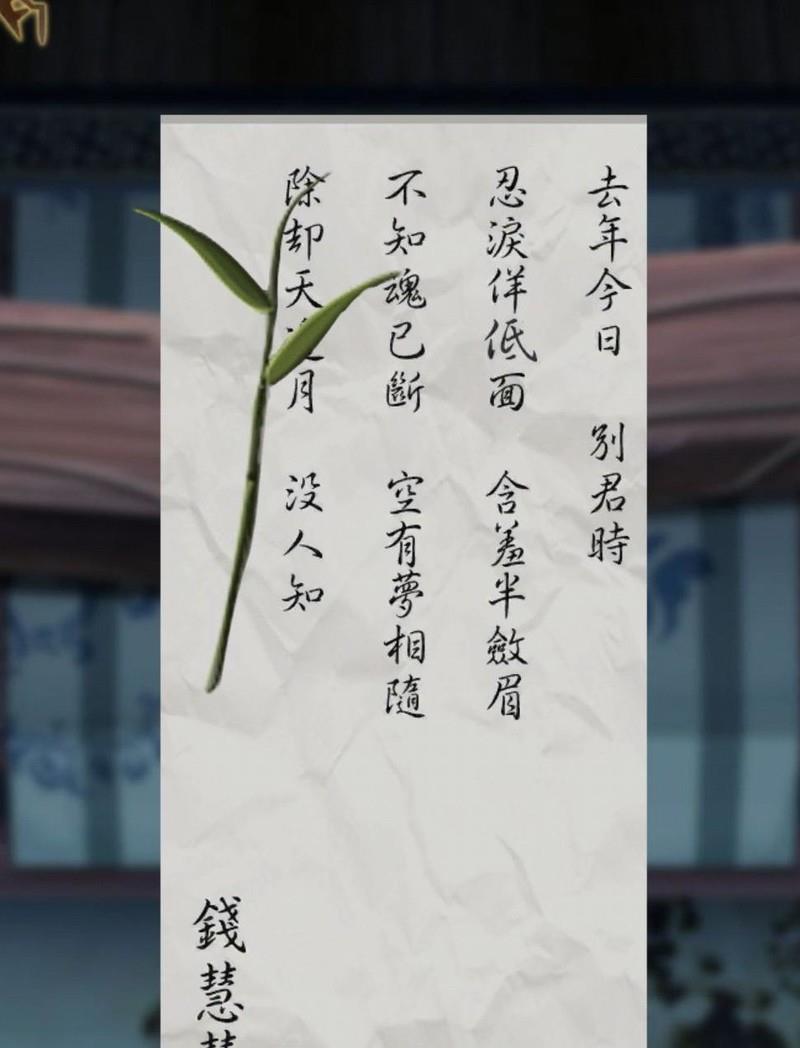 去年今日 別君時
忍淚佯低面 含羞半斂眉
不知魂已斷 空有夢相隨
除却天月 没人知
錢慧